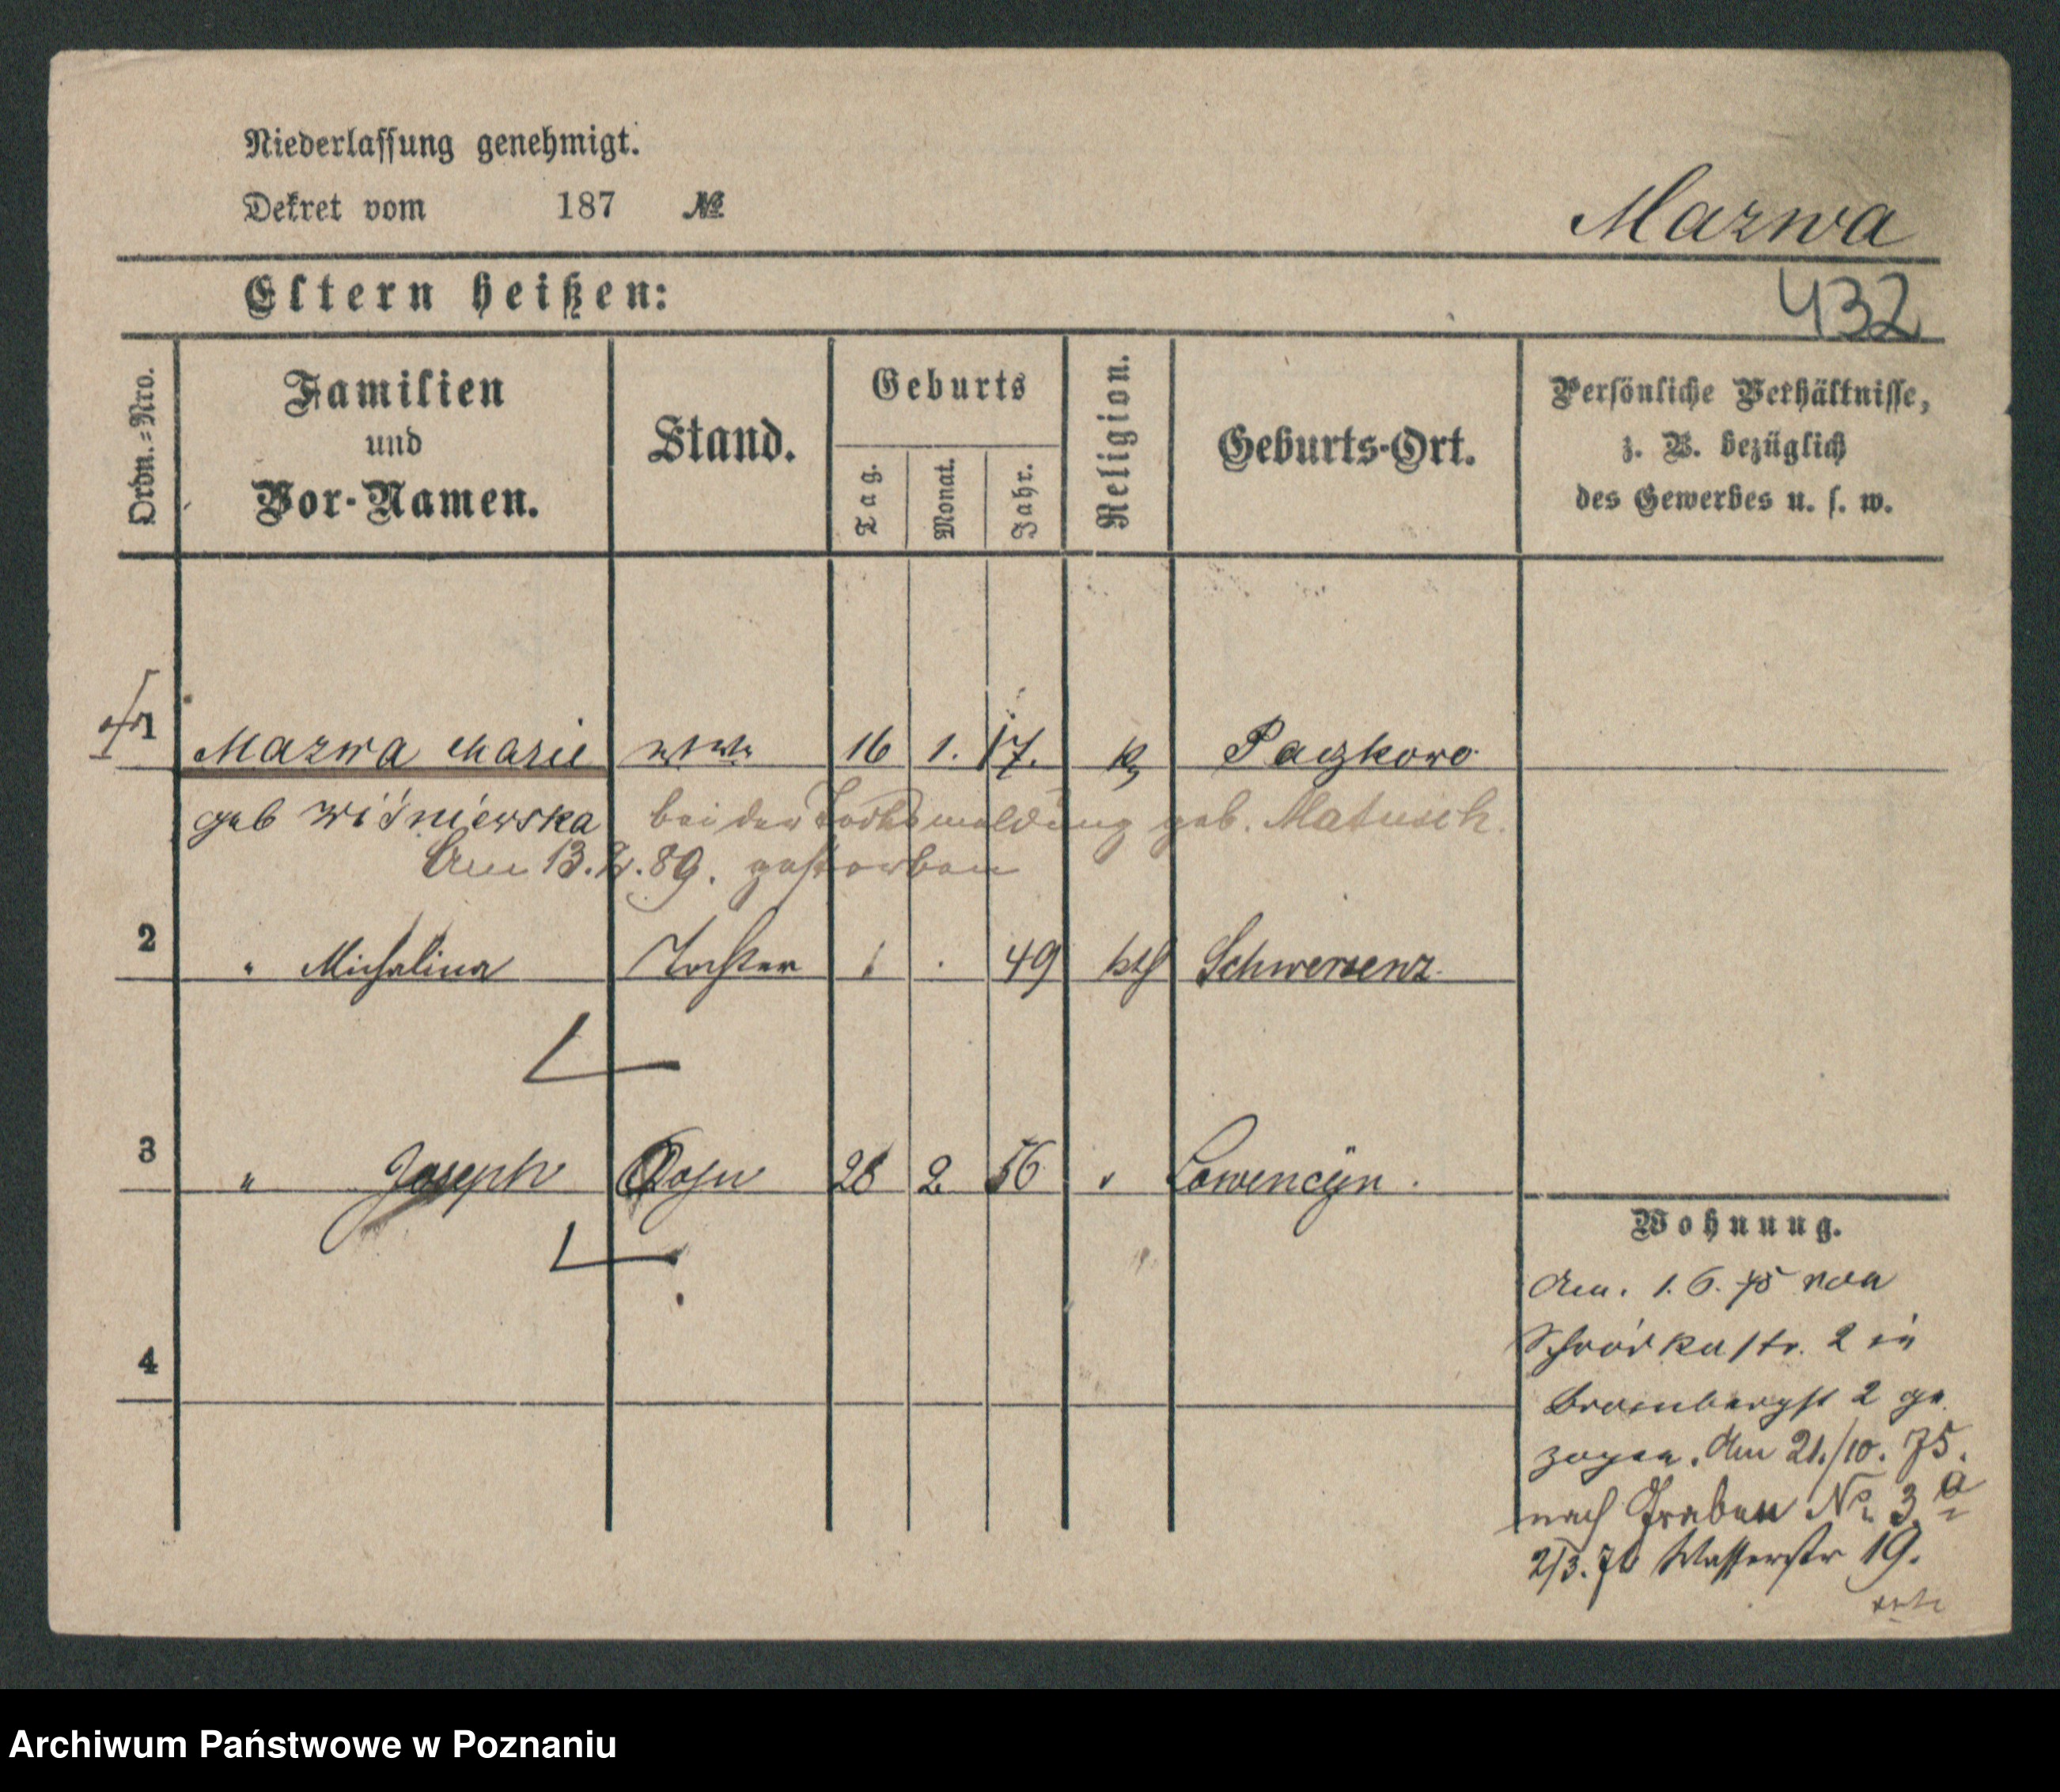 Niederlassung genehmigt.
Dekret vom 187 №
Mazwa
Eltern heißen:
432
Ordn.=Nro.
Familien
und
Vor-Namen.
Stand.
Geburts
Tag.
Monat.
Jahr.
Religion.
Geburts-Ort.
Persönliche Verhältnisse,
z. B. bezüglich
des Gewerbes u. s. w.
1 Mazwa Marie Wtwe 16 1. 17. k Paczkowo
geb Wiśniewska bei der Todtesmeldung geb. Matusch.
Am 13. .89. gestorben
2 " Michalina Tochter 49 kth Schwersenz
3 " Joseph Sohn 28 2 56 " Lowencÿn.
4
Wohnung.
Am. 1. 6. 75 von
Schrodkastr. 2 in
Brombergst 2 ge
zogen. Am 21./10. 75.
nach Graben No 3 a
2/3. 76 Wasserstr 19.
Archiwum Państwowe w Poznaniu